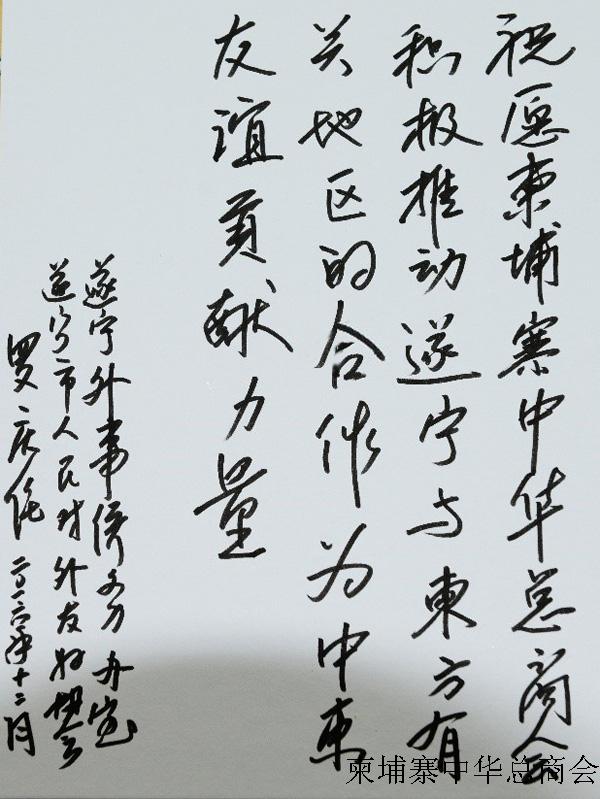 祝愿柬埔寨中华总商会
积极推动遂宁与東方有
关地区的合作为中柬
友谊贡献力量
遂宁外事侨务办室
遂宁市人民对外友好协会
罗庆
二〇一六年十二月
柬埔寨中华总商会